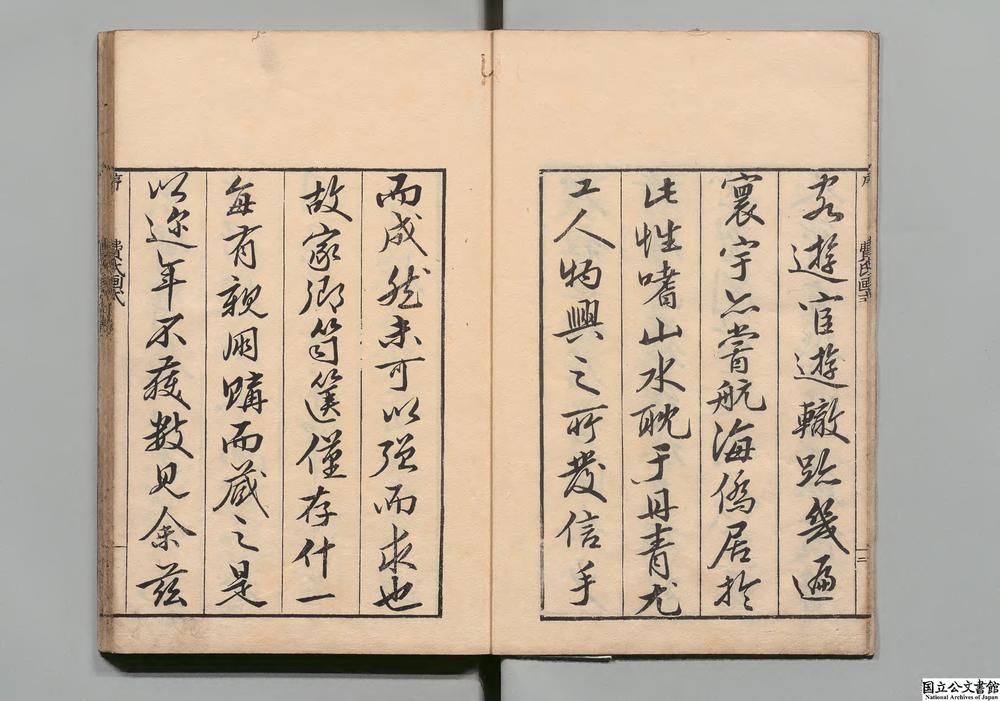 客遊宦遊轍跡幾遍
寰宇亦嘗航海僑居於
此性嗜山水耽于丹青尤
工人物興之所發信手
而成然未可以强而求也
故家鄉笥篋僅存什一
每有親朋購而蔵之是
以迩年不獲数見余茲
序
費氏画式
三
国立公文書館
National Archives of Japan